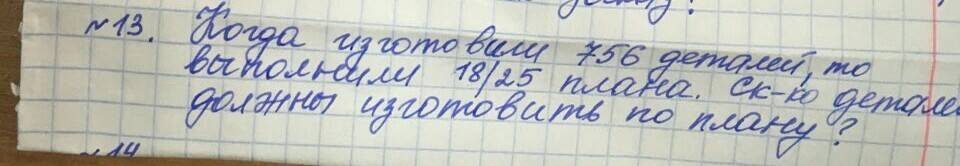 №13. Когда изготовили 756 деталей, то
выполнили 18/25 плана. Ск-ко детале
должны изготовить по плану?